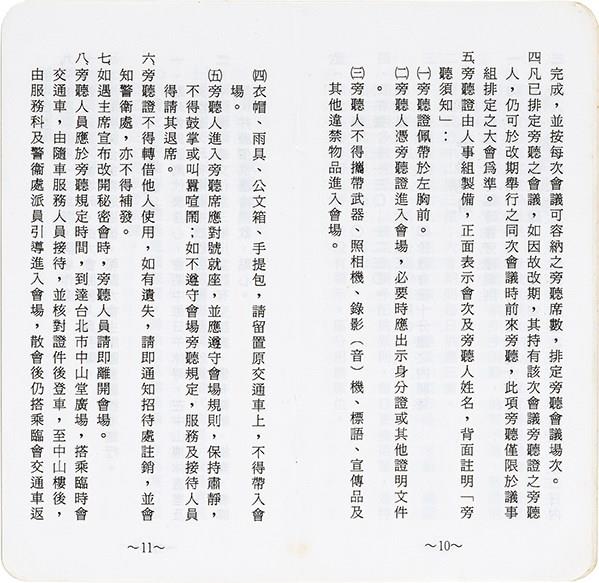 完成，並按每次會議可容納之旁聽席數，排定旁聽會議場次。
四凡已排定旁聽之會議，如因故改期，其持有該次會議旁聽證之旁聽
人，仍可於改期舉行之同次會議時前來旁聽，此項旁聽僅限於議事
組排定之大會爲準。
五旁聽證由人事組製備，正面表示會次及旁聽人姓名，背面註明「旁
聽須知」：
㈠旁聽證佩帶於左胸前。
㈡旁聽人憑旁聽證進入會場，必要時應出示身分證或其他證明文件
。
㈢旁聽人不得攜帶武器、照相機、錄影（音）機、標語、宣傳品及
其他違禁物品進入會場。
～10～
㈣衣帽、雨具、公文箱、手提包，請留置原交通車上，不得帶入會
場。
㈤旁聽人進入旁聽席應對號就座，並應遵守會場規則，保持肅靜，
不得鼓掌或叫囂喧鬧；如不遵守會場旁聽規定，服務及接待人員
得請其退席。
六旁聽證不得轉借他人使用，如有遺失，請即通知招待處註銷，並會
知警衛處，亦不得補發。
七如遇主席宣布改開秘密會時，旁聽人員請即離開會場。
八旁聽人員應於旁聽規定時間，到達台北市中山堂廣場，搭乘臨時會
交通車，由隨車服務人員接待，並核對證件後登車，至中山樓後，
由服務科及警衛處派員引導進入會場，散會後仍搭乘臨會交通車返
～11～